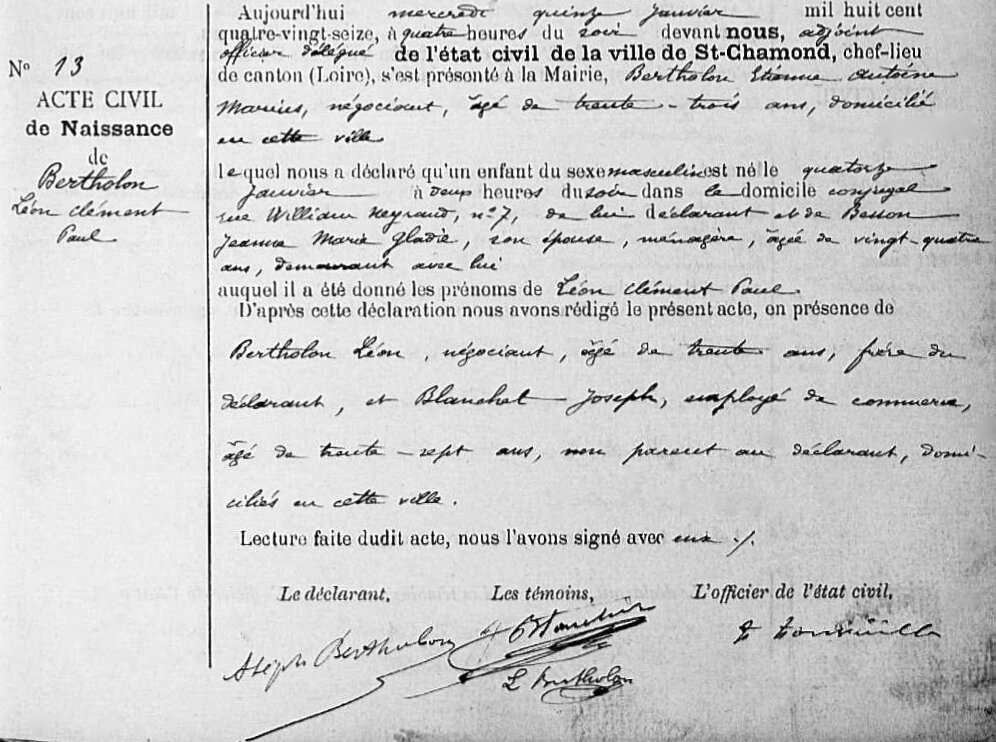 Aujourd'hui mercredi quinze janvier mil huit cent
quatre-vingt-seize, à quatre heures du soir devant nous, adjoint
officier délégué de l'état civil de la ville de St-Chamond, chef-lieu
de canton (Loire), s'est présenté à la Mairie, Bertholon Etienne Antoine
Marius, négociant, âgé de trente-trois ans, domicilié
en cette ville
No 13
ACTE CIVIL
de Naissance
de
Bertholon
Léon Clément
Paul
lequel nous a déclaré qu'un enfant du sexe masculin est né le quatorze
janvier à deux heures du soir dans le domicile conjugal
rue William Neyrand, n° 7, de lui déclarant et de Besson
Jeanne Marie Gladie, son épouse, ménagère, âgée de vingt-quatre
ans, demeurant avec lui
auquel il a été donné les prénoms de Léon Clément Paul
D'après cette déclaration nous avons rédigé le présent acte, en présence de
Bertholon Léon, négociant, âgé de trente ans, frère du
déclarant, et Blanchet Joseph, employé de commerce,
âgé de trente-sept ans, non parent au déclarant, domi-
ciliés en cette ville.
Lecture faite dudit acte, nous l'avons signé avec eux ./.
Le déclarant, Les témoins, L'officier de l'état civil,
Bertholon
L Bertholon